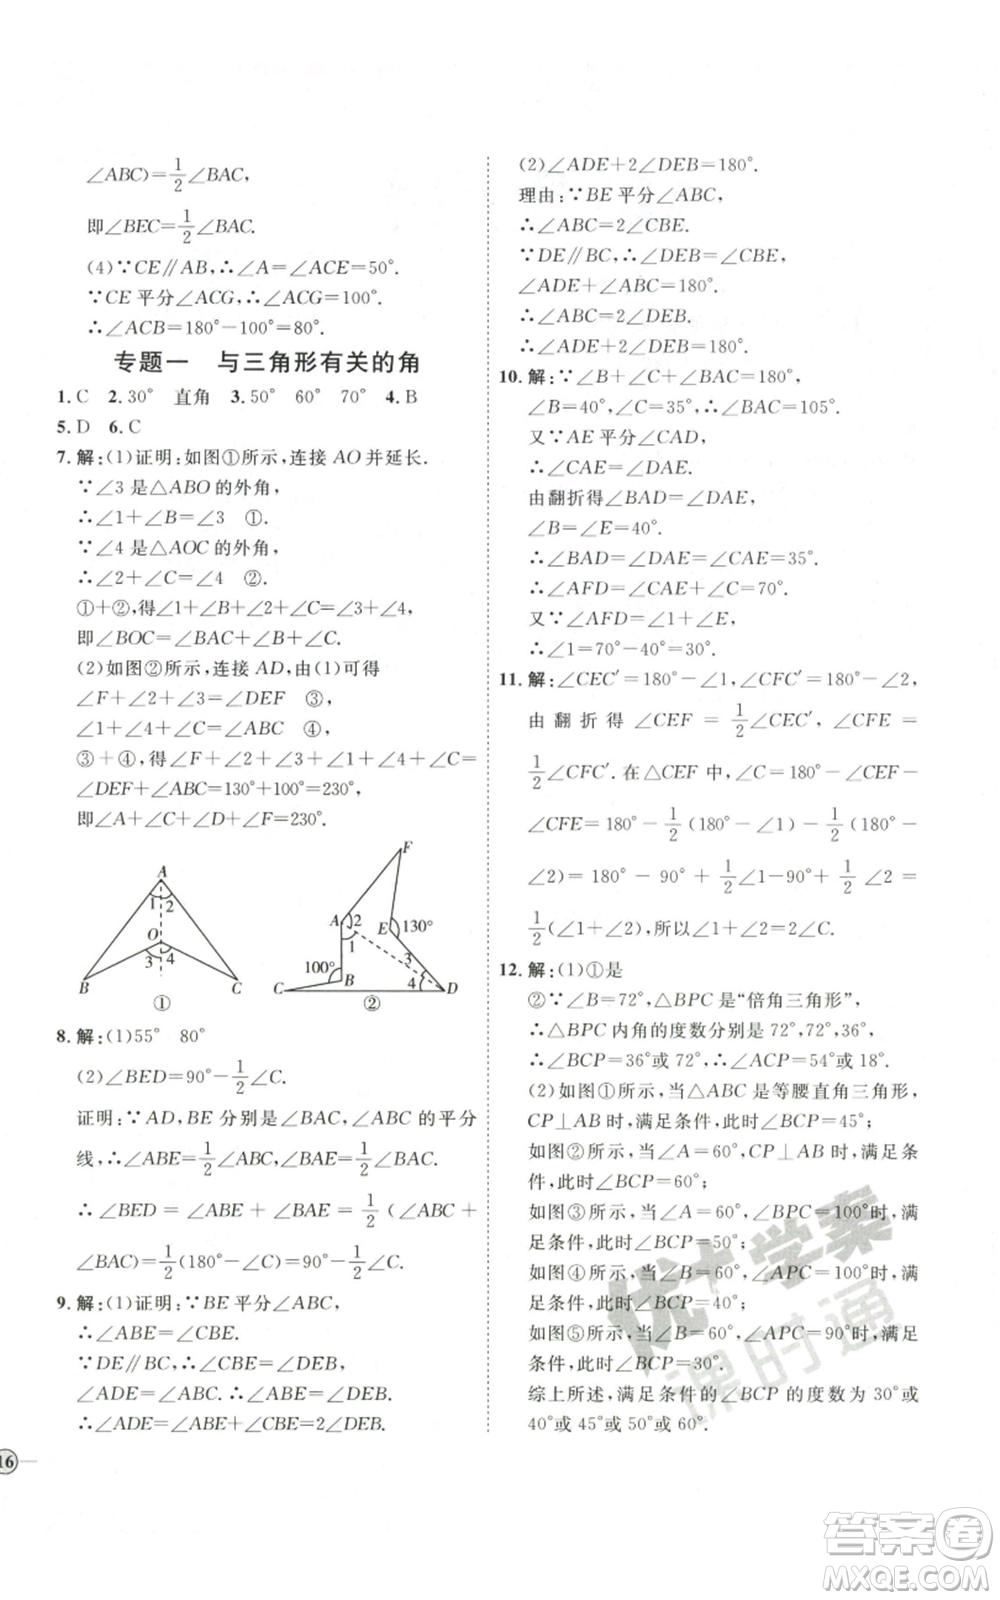 ∠ABC)=1/2∠BAC,
即∠BEC=1/2∠BAC.
(4)∵CE∥AB,∴∠A=∠ACE=50°.
∵CE平分∠ACG,∴∠ACG=100°.
∴∠ACB=180°-100°=80°.
专题一 与三角形有关的角
1.C 2.30° 直角 3.50° 60° 70° 4.B
5.D 6.C
7.解:(1)证明:如图①所示,连接AO并延长.
∵∠3是△ABO的外角,
∴∠1+∠B=∠3 ①.
∵∠4是△AOC的外角,
∴∠2+∠C=∠4 ②.
①+②,得∠1+∠B+∠2+∠C=∠3+∠4,
即∠BOC=∠BAC+∠B+∠C.
(2)如图②所示,连接AD,由(1)可得
∠F+∠2+∠3=∠DEF ③,
∠1+∠4+∠C=∠ABC ④.
③+④,得∠F+∠2+∠3+∠1+∠4+∠C=
∠DEF+∠ABC=130°+100°=230°,
即∠A+∠C+∠D+∠F=230°.
A
1 2
O
3 4
B C
①
F
A 2
E 130°
1
3
100°
B
4
C D
②
8.解:(1)55° 80°
(2)∠BED=90°-1/2∠C.
证明:∵AD,BE分别是∠BAC,∠ABC的平分
线,∴∠ABE=1/2∠ABC,∠BAE=1/2∠BAC.
∴∠BED=∠ABE+∠BAE=1/2(∠ABC+
∠BAC)=1/2(180°-∠C)=90°-1/2∠C.
9.解:(1)证明:∵BE平分∠ABC,
∴∠ABE=∠CBE.
∵DE∥BC,∴∠CBE=∠DEB,
∠ADE=∠ABC.∴∠ABE=∠DEB.
∴∠ADE=∠ABE+∠CBE=2∠DEB.
16
(2)∠ADE+2∠DEB=180°.
理由:∵BE平分∠ABC,
∴∠ABC=2∠CBE.
∵DE∥BC,∴∠DEB=∠CBE,
∠ADE+∠ABC=180°.
∴∠ABC=2∠DEB.
∴∠ADE+2∠DEB=180°.
10.解:∵∠B+∠C+∠BAC=180°,
∠B=40°,∠C=35°,∴∠BAC=105°.
又∵AE平分∠CAD,
∴∠CAE=∠DAE.
由翻折得∠BAD=∠DAE,
∠B=∠E=40°.
∴∠BAD=∠DAE=∠CAE=35°.
∴∠AFD=∠CAE+∠C=70°.
又∵∠AFD=∠1+∠E,
∴∠1=70°-40°=30°.
11.解:∠CEC′=180°-∠1,∠CFC′=180°-∠2,
由翻折得∠CEF=1/2∠CEC′,∠CFE=
1/2∠CFC′.在△CEF中,∠C=180°-∠CEF-
∠CFE=180°-1/2(180°-∠1)-1/2(180°-
∠2)=180°-90°+1/2∠1-90°+1/2∠2=
1/2(∠1+∠2),所以∠1+∠2=2∠C.
12.解:(1)①是
②∵∠B=72°,△BPC是“倍角三角形”,
∴△BPC内角的度数分别是72°,72°,36°,
∴∠BCP=36°或72°,∴∠ACP=54°或18°.
(2)如图①所示,当△ABC是等腰直角三角形,
CP⊥AB时,满足条件,此时∠BCP=45°;
如图②所示,当∠B=30°,CP⊥AB时,满足条
件,此时∠BCP=60°;
如图③所示,当∠A=60°,∠BPC=100°时,满
足条件,此时∠BCP=50°;
如图④所示,当∠B=60°,∠APC=100°时,满
足条件,此时∠BCP=40°;
如图⑤所示,当∠B=60°,∠APC=90°时,满
足条件,此时∠BCP=30°.
综上所述,满足条件的∠BCP的度数为30°或
40°或45°或50°或60°.
优+学案
课时通
答案卷
MXQE.COM